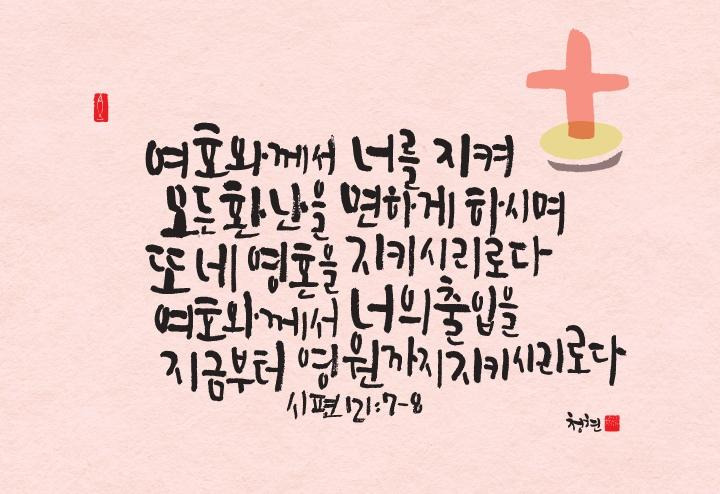 여호와께서 너를 지켜
모든 환난을 면하게 하시며
또 네 영혼을 지키시리로다
여호와께서 너의 출입을
지금부터 영원까지 지키시리로다
시편 121:7-8
청현